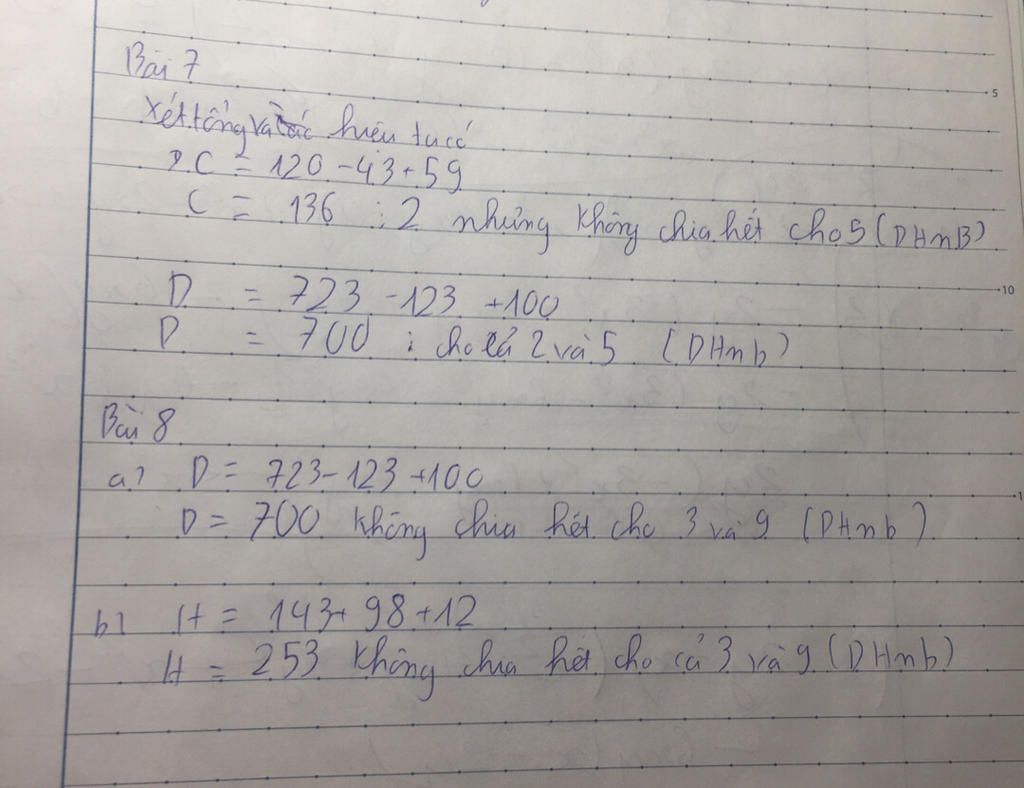 Bài 7
Xét tổng và các hiệu ta có
C = 120 - 43 + 59
C = 136 : 2 nhưng không chia hết cho 5 (DHnB)
D = 723 - 123 + 100
D = 700 : cho cả 2 và 5 (DHnb)
Bài 8
a) D = 723 - 123 + 100
D = 700 không chia hết cho 3 và 9 (DHnb)
b) H = 143 + 98 + 12
H = 253 không chia hết cho cả 3 và 9 (DHnb)
5
10